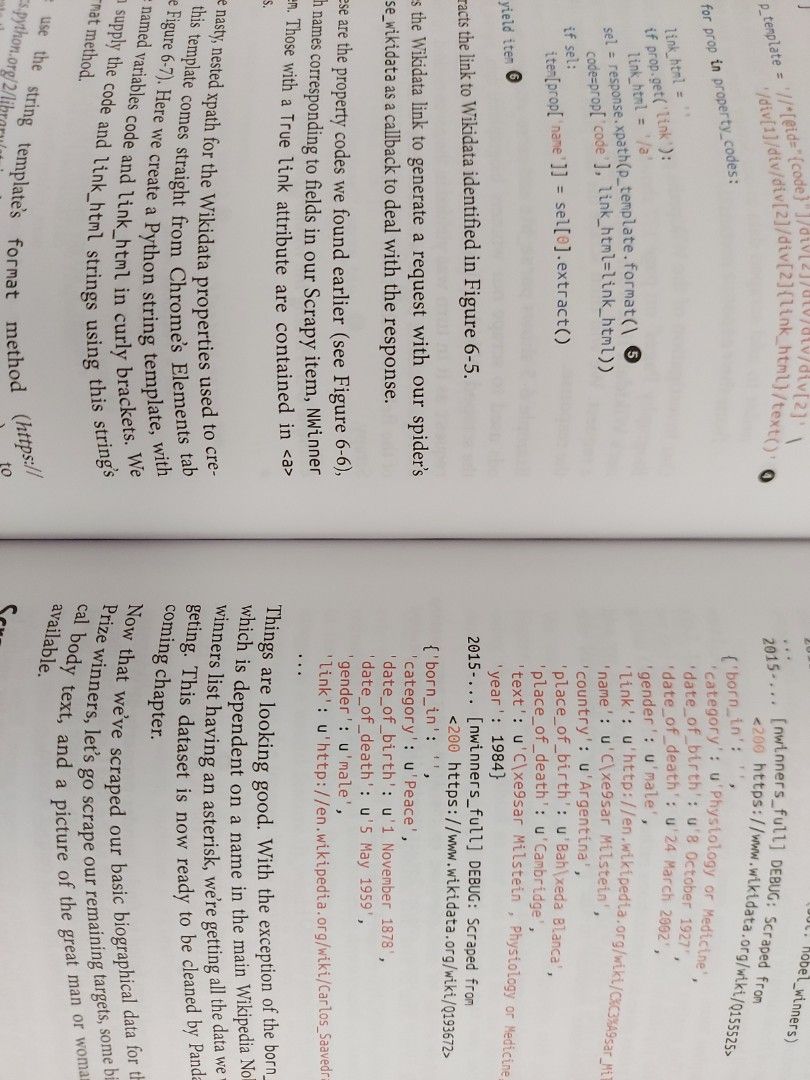 p_template = '//*[@id="{code}"]/div[2]/div/div/div[2]' \
'/div[1]/div/div[2]/div[2]{link_html}/text()' 4
for prop in property_codes:
link_html = ''
if prop.get('link'):
link_html = '/a'
sel = response.xpath(p_template.format(\ 5
code=prop['code'], link_html=link_html))
if sel:
item[prop['name']] = sel[0].extract()
yield item 6
racts the link to Wikidata identified in Figure 6-5.
s the Wikidata link to generate a request with our spider's
se_wikidata as a callback to deal with the response.
ese are the property codes we found earlier (see Figure 6-6),
h names corresponding to fields in our Scrapy item, NWinner
em. Those with a True link attribute are contained in <a>
s.
e nasty, nested xpath for the Wikidata properties used to cre-
this template comes straight from Chrome's Elements tab
e Figure 6-7). Here we create a Python string template, with
named variables code and link_html in curly brackets. We
supply the code and link_html strings using this string's
mat method.
use the string template's format method (https://
s.python.org/2/library/
to
nobel_winners)
...
2015-... [nwinners_full] DEBUG: Scraped from
<200 https://www.wikidata.org/wiki/Q155525>
{'born_in': '',
'category': u'Physiology or Medicine',
'date_of_birth': u'8 October 1927',
'date_of_death': u'24 March 2002',
'gender': u'male',
'link': u'http://en.wikipedia.org/wiki/C%C3%A9sar_Mil
'name': u'C\xe9sar Milstein',
'country': u'Argentina',
'place_of_birth': u'Bah\xeda Blanca',
'place_of_death': u'Cambridge',
'text': u'C\xe9sar Milstein , Physiology or Medicine,
'year': 1984}
2015-... [nwinners_full] DEBUG: Scraped from
<200 https://www.wikidata.org/wiki/Q193672>
{'born_in': '',
'category': u'Peace',
'date_of_birth': u'1 November 1878',
'date_of_death': u'5 May 1959',
'gender': u'male',
'link': u'http://en.wikipedia.org/wiki/Carlos_Saavedra
...
Things are looking good. With the exception of the born_
which is dependent on a name in the main Wikipedia Nob
winners list having an asterisk, we're getting all the data we
geting. This dataset is now ready to be cleaned by Panda
coming chapter.
Now that we've scraped our basic biographical data for th
Prize winners, let's go scrape our remaining targets, some bi
cal body text, and a picture of the great man or woma
available.